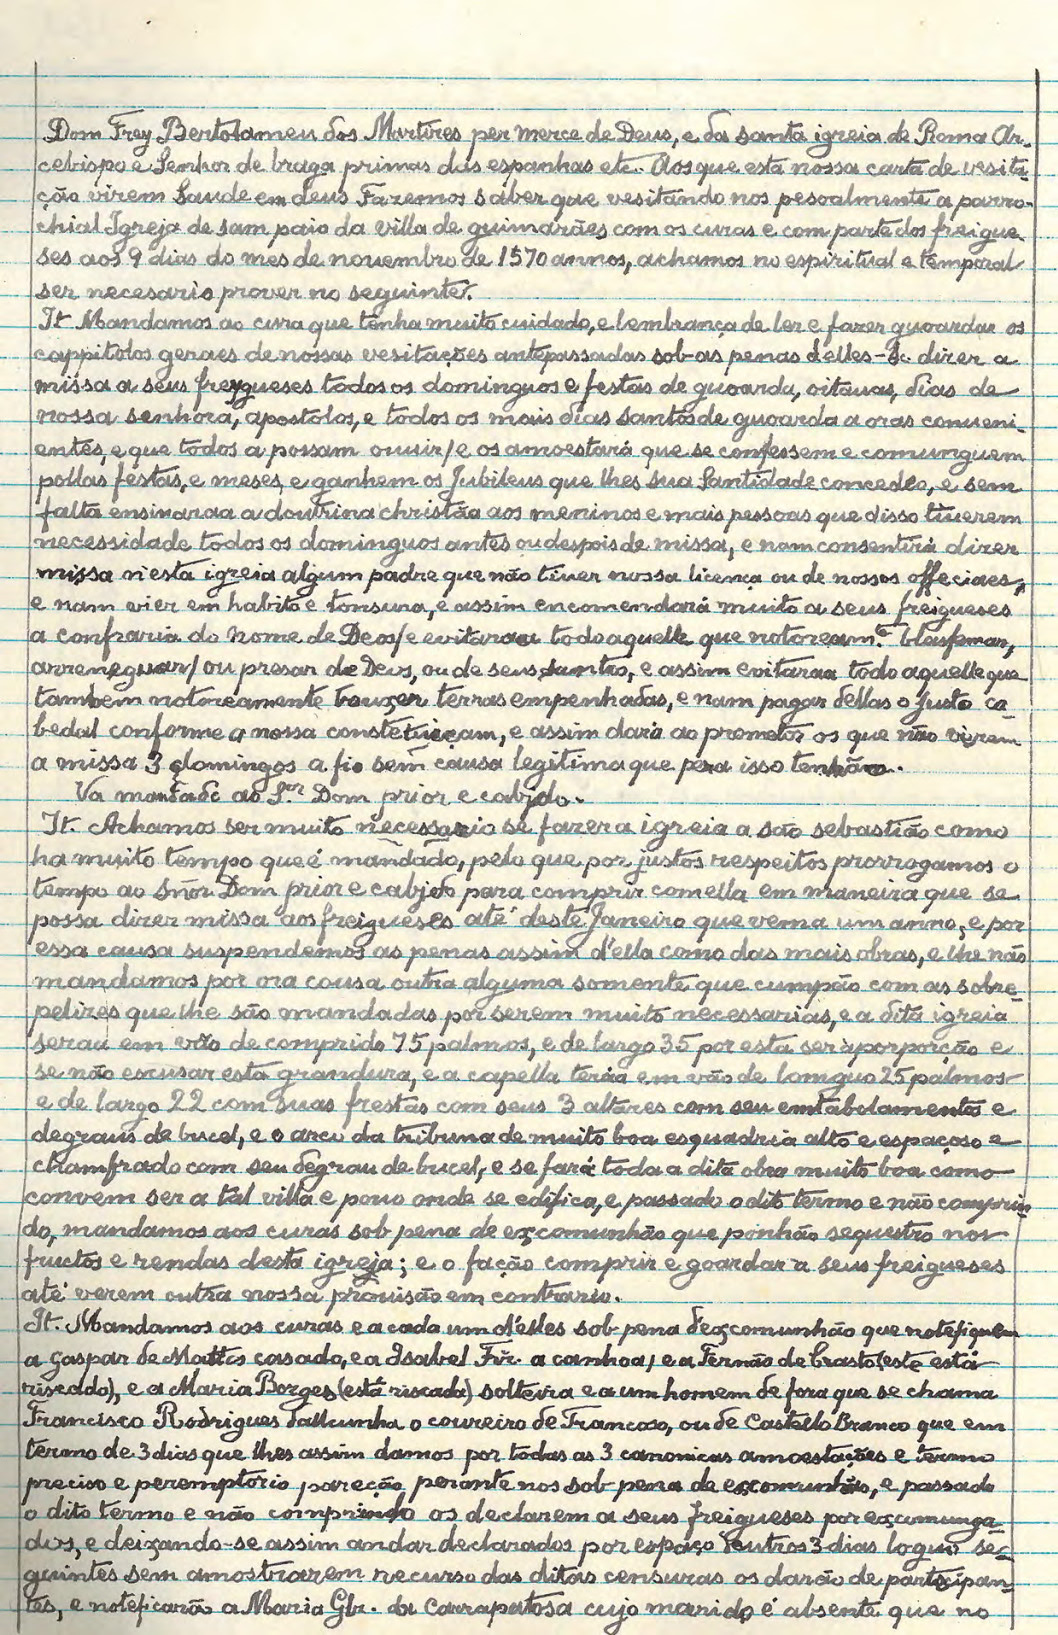 Dom Frey Bertolameu dos Martires per merce de Deus, e da santa igreia de Roma Ar-
cebispo e Senhor de braga primas das espanhas etc. Aos que esta nossa carta de vesita-
ção virem Saude em deus Fazemos saber que vesitando nos pesoalmente a parro-
chial Igreja de sam paio da villa de guimarães com os curas e com parte dos freigue-
ses aos 9 dias do mes de novembro de 1570 annos, achamos no espiritual e temporal
ser necesario prover no seguinte.
It Mandamos ao cura que tenha muito cuidado, e lembrança de ler e fazer guoardar os
cappitolos geraes de nossas vesitações antepassadas sob-as penas delles - &. dizer a
missa a seus freygueses todos os dominguos e festas de guoarda, oitauas, dias de
nossa senhora, apostolos, e todos os mais dias santos de guoarda a oras conueni-
entes, e que todos a possam ouuir/ e os amoestará que se confessem e comunguem
pollas festas, e meses, e ganhem os Jubileus que lhes sua Santidade concedeo, e sem
falta ensinaraa a doutrina christãa aos meninos e mais pessoas que disso tiuerem
necessidade todos os dominguos antes ou despois de missa, e nam consentirá dizer
missa n'esta igreia algum padre que não tiuer nossa licença ou de nossos officiaes,
e nam vier em habito e tonsura, e assim encomendará muito a seus freigueses
a confraria do Nome de Deos/ e evitaraa todo aquelle que notoream.te blasfemar,
arreneguar/ ou presar de Deus, ou de seus santos, e assim evitaraa todo aquelle que
tambem notoreamente trouxer terras empenhadas, e nam pagar dellas o justo ca-
bedal conforme a nossa constetuiçam, e assim dará ao prometor os que não virem
a missa 3 domingos a fio sem causa legitima que pera isso tenhão.
Va mandado ao S.or Dom prior e cabido.
It. Achamos ser muito necessario se fazer a igreia a são sebastião como
ha muito tempo que é mandado, pelo que por justos respeitos prorrogamos o
tempo ao Snõr Dom prior e cabido para comprir com ella em maneira que se
possa dizer missa aos freigueses até deste Janeiro que vema um anno, e por
essa causa suspendemos as penas assim d'ella como das mais obras, e lhe não
mandamos por ora cousa outra alguma somente que cumpão com as sobre-
pelizes que lhe são mandadas por serem muito necessarias, e a dita igreia
seraa em vão de comprido 75 palmos, e de largo 35 por esta ser a porporção e
se não escusar esta grandura, e a capella teraa em vão de longuo 25 palmos
e de largo 22 com suas frestas com seus 3 altares com seu emtabolamentos e
degraus de bucel, e o arco da tribuna de muito boa esquadria alto e espaçoso e
chamfrado com seu degrau de bucel, e se fará toda a dita obra muito boa como
convem ser a tal villa e pouo onde se edifica, e passado o dito termo e não comprin-
do, mandamos aos curas sob pena de excomunhão que ponhão sequestro nos
fructos e rendas desta igreja; e o fação comprir e goardar a seus freigueses
até verem outra nossa prouisão em contrario.
It. Mandamos aos curas e a cada um d'elles sob pena de excomunhão que notefiquem
a Gaspar de Mattos casado, e a Isabel Frz. a canhoa, e a Fernão de Crasto (este está
riscado), e a Maria Borges (está riscada) solteira e a um homem de fora que se chama
Francisco Rodrigues dallcunha o coureiro de Francoso, ou de Castello Branco que em
termo de 3 dias que lhes assim damos por todas as 3 canonicas amoestações e termo
preciso e peremptorio pareção perante nos sob pena de excomunhão, e passado
o dito termo e não comprindo os declarem a seus freigueses por excomunga-
dos, e deixando-se assim andar declarados por espaço d'outros 3 dias loguo se-
guintes sem amostrarem recurso das ditas censuras os darão de partecipan-
tes, e noteficarão a Maria Glz. da Carrapatosa cujo marido é absente que no